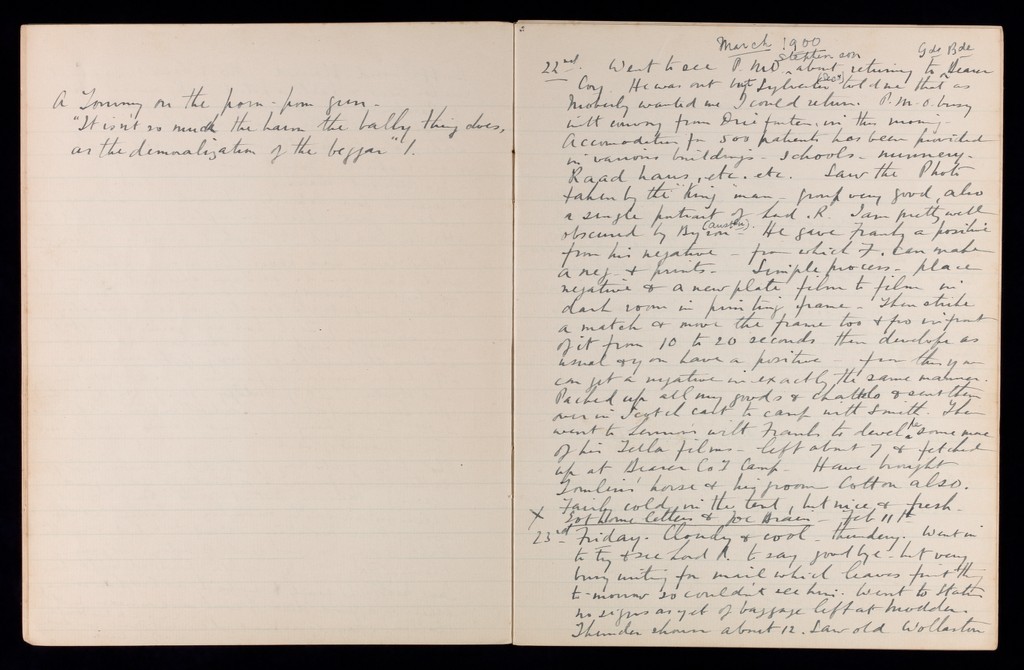 A Tommy on the pom-pom gun -
"It isn't so much the harm the bally thing does,
as the demoralization of the beggar"!
March 1900
Gds Bde
Stephenson
22nd. Went to see P.M.O about returning to Bearer
Coy. He was out but Sylvester (Sec) told me that as
Moberly wanted me I could return. P.M.O. busy
with convoy from Driefontein, in this morning.
Accomodation for 500 patients has been provided
in various buildings - schools - nunnery -
Raad haus, etc. etc. Saw the Photo
taken by the "King" man - group very good, also
a single portrait of Lord R. I am pretty well
obscured by Byron (Austn). He gave Franky a positive
from his negative - from which F. can make
a neg. & prints - Simple process - place
negative & a new plate film to film in
dark room in printing frame - Then strike
a match & move the frame too & fro in front
of it from 10 to 20 seconds then develope as
usual & you have a positive - from this you
can get a negative in exactly the same manner.
Packed up all my goods & chattels & sent them
over in Scotch cart to camp with Smith. Then
went to with Franks to develope some more
of his films - left about 7 & fetched
up at Bearer Co's Camp - Have brought
Tomlins' horse & his groom Cotton also.
Fairly cold in the tent, but nice & fresh -
X Got Home Letters & Joe - Feb 11th
23rd Friday. Cloudy & cool - thundery. Went in
to try & see Lord R. to say goodbye - but very
busy writing for mail which leaves first thing
to-morrow so couldn't see him. Went to Station
no signs as yet of baggage left at Modder.
Thunder shower about 12. Saw old Wollaston